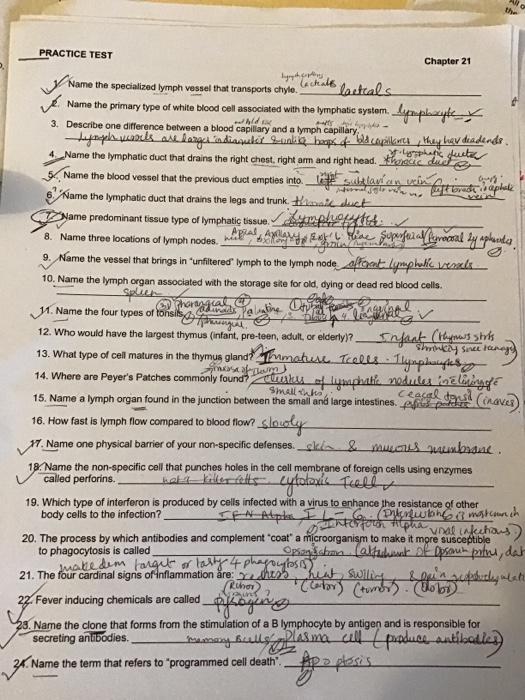 PRACTICE TEST
Chapter 21
1. Name the specialized lymph vessel that transports chyle. lacteals
2. Name the primary type of white blood cell associated with the lymphatic system. lymphocyte
3. Describe one difference between a blood capillary and a lymph capillary.
Lymph vessels are larger in diameter & unlike hoops of bld capillaries, they hav deadends.
4. Name the lymphatic duct that drains the right chest, right arm and right head. thoracic duct
5. Name the blood vessel that the previous duct empties into. left subclavian vein
6. Name the lymphatic duct that drains the legs and trunk. thoracic duct
7. Name predominant tissue type of lymphatic tissue. Lymphocytes.
8. Name three locations of lymph nodes.
9. Name the vessel that brings in "unfiltered" lymph to the lymph node. afferent lymphatic vessels
10. Name the lymph organ associated with the storage site for old, dying or dead red blood cells.
spleen
11. Name the four types of tonsils. pharangeal adinoids Palatine lingual
12. Who would have the largest thymus (infant, pre-teen, adult, or elderly)? Infant (thymus strts
shrinking since teenage)
13. What type of cell matures in the thymus gland? Immature Tcells - Tlymphocytes
14. Where are Peyer's Patches commonly found? clusters of lymphatic nodules in lining of
small intes.
15. Name a lymph organ found in the junction between the small and large intestines. ceacal tonsil
16. How fast is lymph flow compared to blood flow? slowly
17. Name one physical barrier of your non-specific defenses. skin & mucous membrane.
18. Name the non-specific cell that punches holes in the cell membrane of foreign cells using enzymes
called perforins. natr killer cells cytotoxic Tcell
19. Which type of interferon is produced by cells infected with a virus to enhance the resistance of other
body cells to the infection? IFN Alpha
Interferon Alpha viral infections)
20. The process by which antibodies and complement "coat" a microorganism to make it more susceptible
to phagocytosis is called Opsonisation
make dem target or tasty 4 phagocytosis)
21. The four cardinal signs of inflammation are: redness, heat, swlling, & pain
(Rubor) (calor) (tumor). (dolor)
22. Fever inducing chemicals are called Pyrogens
23. Name the clone that forms from the stimulation of a B lymphocyte by antigen and is responsible for
secreting antibodies. memory Bcells plasma cell (produce antibodies)
24. Name the term that refers to "programmed cell death". Apoptosis